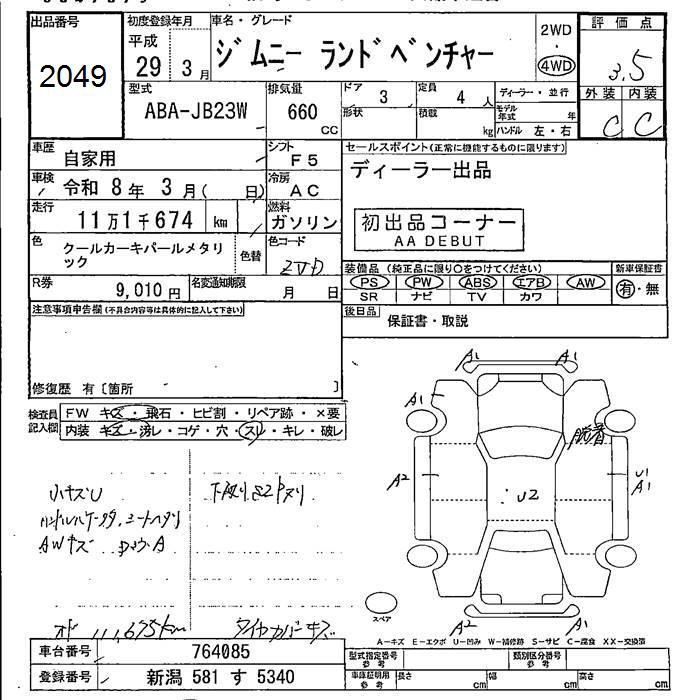 出品番号
2049
初度登録年月
平成
29 3月
車名・グレード
ジムニー ランドベンチャー
2WD
・
4WD
評価点
3.5
外装 内装
C C
型式
ABA-JB23W
排気量
660
cc
ドア
3
形状
定員
4 人
積載
kg
ディーラー・並行
モデル年式 年
ハンドル 左・右
車歴
自家用
シフト
F5
車検
令和 8年 3月( 日)
冷房
AC
走行
11万1千674 km
燃料
ガソリン
色
クールカーキパールメタリック
色替
色コード
ZVD
R券
9,010円
名変通知期限
月 日
セールスポイント(正常に機能するものに限ります)
ディーラー出品
初出品コーナー
AA DEBUT
装備品 (純正品に限り○をつけてください)
PS PW ABS エアB AW
SR ナビ TV カワ
新車保証書
有・無
後日品
保証書・取説
注意事項申告欄(不具合内容等は具体的に記入して下さい)
修復歴 有〔箇所 〕
検査員記入欄
FW キズ・飛石・ヒビ割・リペア跡・×要
内装 キズ・汚レ・コゲ・穴・スレ・キレ・破レ
小キズU
AWキズ
111,675km
タイヤカバーキズ
A1 A1
A1
脱着
A2
U2
U1
A1
A2 A1
スペア
A-キズ E-エクボ U-凹み W-補修跡 S-サビ C-腐食 XX-交換済
車台番号
764085
登録番号
新潟 581 す 5340
型式指定番号
参考
類別区分番号
参考
車庫証明用
参考
長さ cm
幅 cm
高さ cm